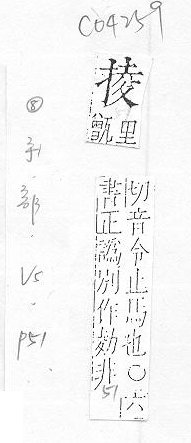 C04259
掕
里
甑
切音令止馬也○六
書正譌別作非
51
⑧手·部·V5·P51